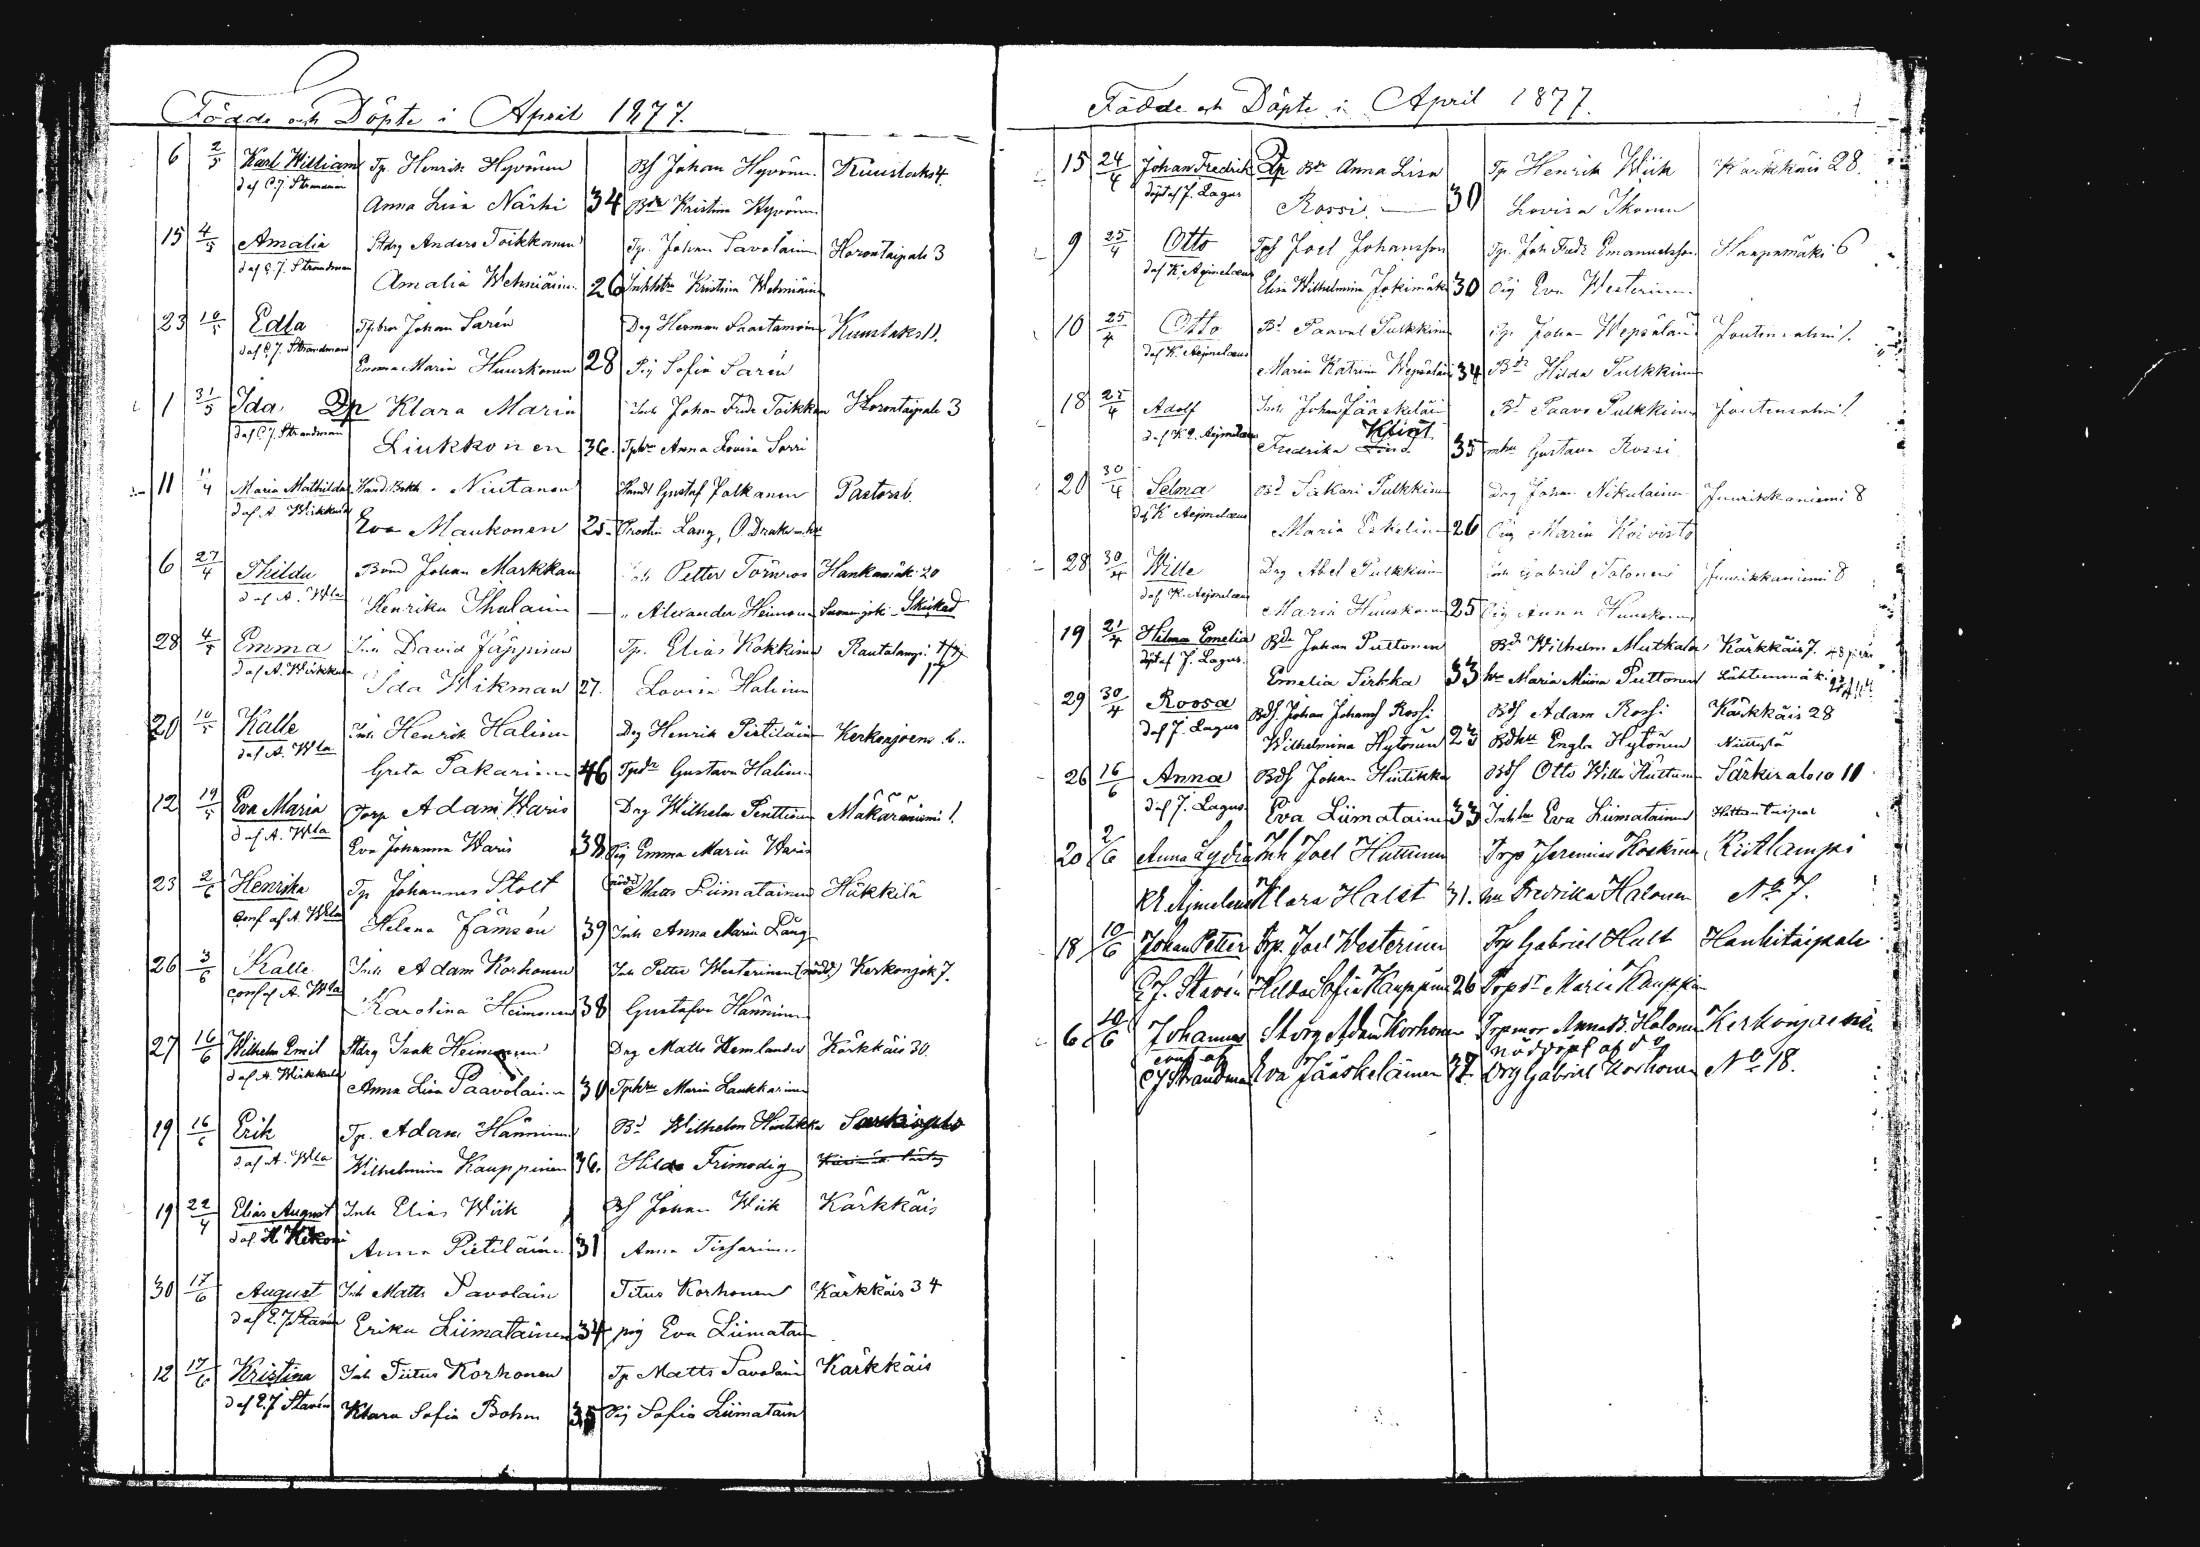 Födde och Döpte i April 1877.
6 2/5 Karl William Tp. Henrik Hyvönen Bf Johan Hyvönen Kuuslaks 4.
d af C. J. Strandman Anna Lisa Närhi 34 Bdr Kristina Hyvönen
15 4/5 Amalia Stdrg Anders Toikkanen Tp. Johan Savolain Horontaipale 3
d af C. J. Strandman Amalia Wehniäinen 26 Inhhtr Kristina Wehniäin
23 10/5 Edla Tpbror Johan Sarén Drg Herman Saastamoin Kuuslaks 11.
d af C. J. Strandman Emma Maria Huuskonen 28 Pig Sofia Sarén
1 31/5 Ida Dp Klara Maria Inh Johan Fredr Toikkan Horontaipale 3
d af C. J. Strandman Liukkonen 36. Tphu Anna Lovisa Sorri
11 11/4 Maria Mathilda Handl. Bokh. Niutanen Handl Gustaf Jalkanen Pastorsb.
d af A. Wirkkula Eva Maukonen 25 Prostin Lang,
6 27/4 Hilda Bond Johan Markkan Inh Petter Törnroos Hankamäk 20
d af A. Wla Henrika Ihalain — " Alexander Heimonen Suonenjoki - Skickad
28 4/5 Emma Inh David Jäppinen Tp. Elias Kokkinen Rautalampi
d af A. Wirkkula Ida Wikman 27. Lovisa Halinen
20 10/5 Kalle Inh Henrik Halinen Drg Henrik Pietiläin Kerkonjoens 6.
d af A. Wla Greta Pakarinen 46 Tpdr Gustava Halinen
12 19/5 Eva Maria Torp Adam Waris Drg Wilhelm Penttinen Makäräniemi 1.
d af A. Wla Eva Johanna Waris 38 Pig Emma Maria Waris
23 2/6 Henrika Tp Johannes Stolt (nödd) Matts Liimatainen Häkkilä
Conf af A. Wla Helena Jämsén 39 Inh Anna Maria Lång
26 3/6 Kalle Inh Adam Korhonen Inh Petter Westerinen (nödd) Kerkonjok 7.
conf af A. Wla Karolina Heimonen 38 Gustafva Hänninen
27 16/6 Wilhelm Emil Stdrg Isak Heimonen Drg Matts Hemlander Kärkkäis 30.
d af A. Wirkkula Anna Lisa Paavolainen 30 Tphu Maria Laukkarinen
19 16/6 Erik Tp. Adam Hänninen Bd Wilhelm Hintikka
d af A. Wla Wilhelmina Kauppinen 36. Hilda Frimodig
19 22/4 Elias August Inh Elias Wiik Bf Johan Wiik Kärkkäis
d af Anna Pietiläinen 31 Anna Tissarinen
30 17/6 August Inh Matts Pavolain Titus Korhonen Kärkkäis 34
d af E. J. Stavén Erika Liimatainen 34 pig Eva Liimatain
12 17/6 Kristina Inh Tiitus Korhonen Tp Matts Savolain Kärkkäis
d af E. J. Stavén Klara Sofia Bohm 35 Pig Sofia Liimatain
Födde och Döpte i April 1877.
15 24/4 Johan Fredrik Dp Bdr Anna Lisa Tp Henrik Wiik Kärkkäis 28.
döpt af J. Lagus Rossi — 30 Lovisa Ikonen
9 25/4 Otto Tpf Joel Johansson Tp. Joh Fredr Emanuelsson Haapamäki 6
d af K. Aejmelæus Elisa Wilhelmina Jokimäki 30 Pig Eva Westerinen
10 25/4 Otto Bd Paaval Pulkkinen Tp Johan Wepsäläin Joutensalmi 1.
d af K. Aejmelæus Maria Katrina Wepsäläin 34 Bdr Hilda Pulkkinen
18 25/4 Adolf Inh Johan Jääskeläi Bd Paavo Pulkkinen Joutensalmi 1
d af K. A. Aejmelæus Fredrika 35 mhu Gustava Rossi
20 30/4 Selma Bd Sakari Pulkkinen Drg Johan Nikulainen Juurikkaniemi 8
d af K Aejmelæus Maria Eskelinen 26 Pig Maria Koivisto
28 30/4 Wille Drg Abel Pulkkinen Inh Gabriel Talonen Juurikkaniemi 8
d af K. Aejmelæus Maria Huuskonen 25 Pig Anna Huuskonen
19 21/4 Hilma Emelia Bd Johan Puttonen Bd Wilhelm Mutkala Kärkkäis 7.
döpt af J. Lagus. Emelia Sirkka 33 hu Maria Miina Puttonen Lähteenmäki
29 30/4 Roosa Bdf. Johan Johansf Rossi Bdf Adam Rossi Kärkkäis 28
d af J. Lagus Wilhelmina Hytönen 23 Bdhu Engla Hytönen Niittylä
26 16/6 Anna Bdf Johan Hintikka Bdf Otto Wille Huttunen Särkisalo 10 11
d af J. Lagus. Eva Liimatainen 33 Inhhu Eva Liimatainen
20 2/6 Anna Lydia Inh Joel Huttunen Trp Jeremias Koskinen Ristlampi
K A Ajmelæus Klara Halst 31. hu Fredrika Halonen No. 7.
18 10/6 Johan Petter Trp. Joel Westerinen Trp Gabriel Hult Hankitaipale
E. J. Stavén Hilda Sofia Kauppinen 26 Trpdr Maria Kauppin
6 10/6 Johannes Storg Adam Korhonen Trpmor Anna B. Halonen Kerkonjoensu
conf af nöddöpt af do
C J Strandman Eva Jääskeläinen 37. Drg Gabriel Korhonen No 18.